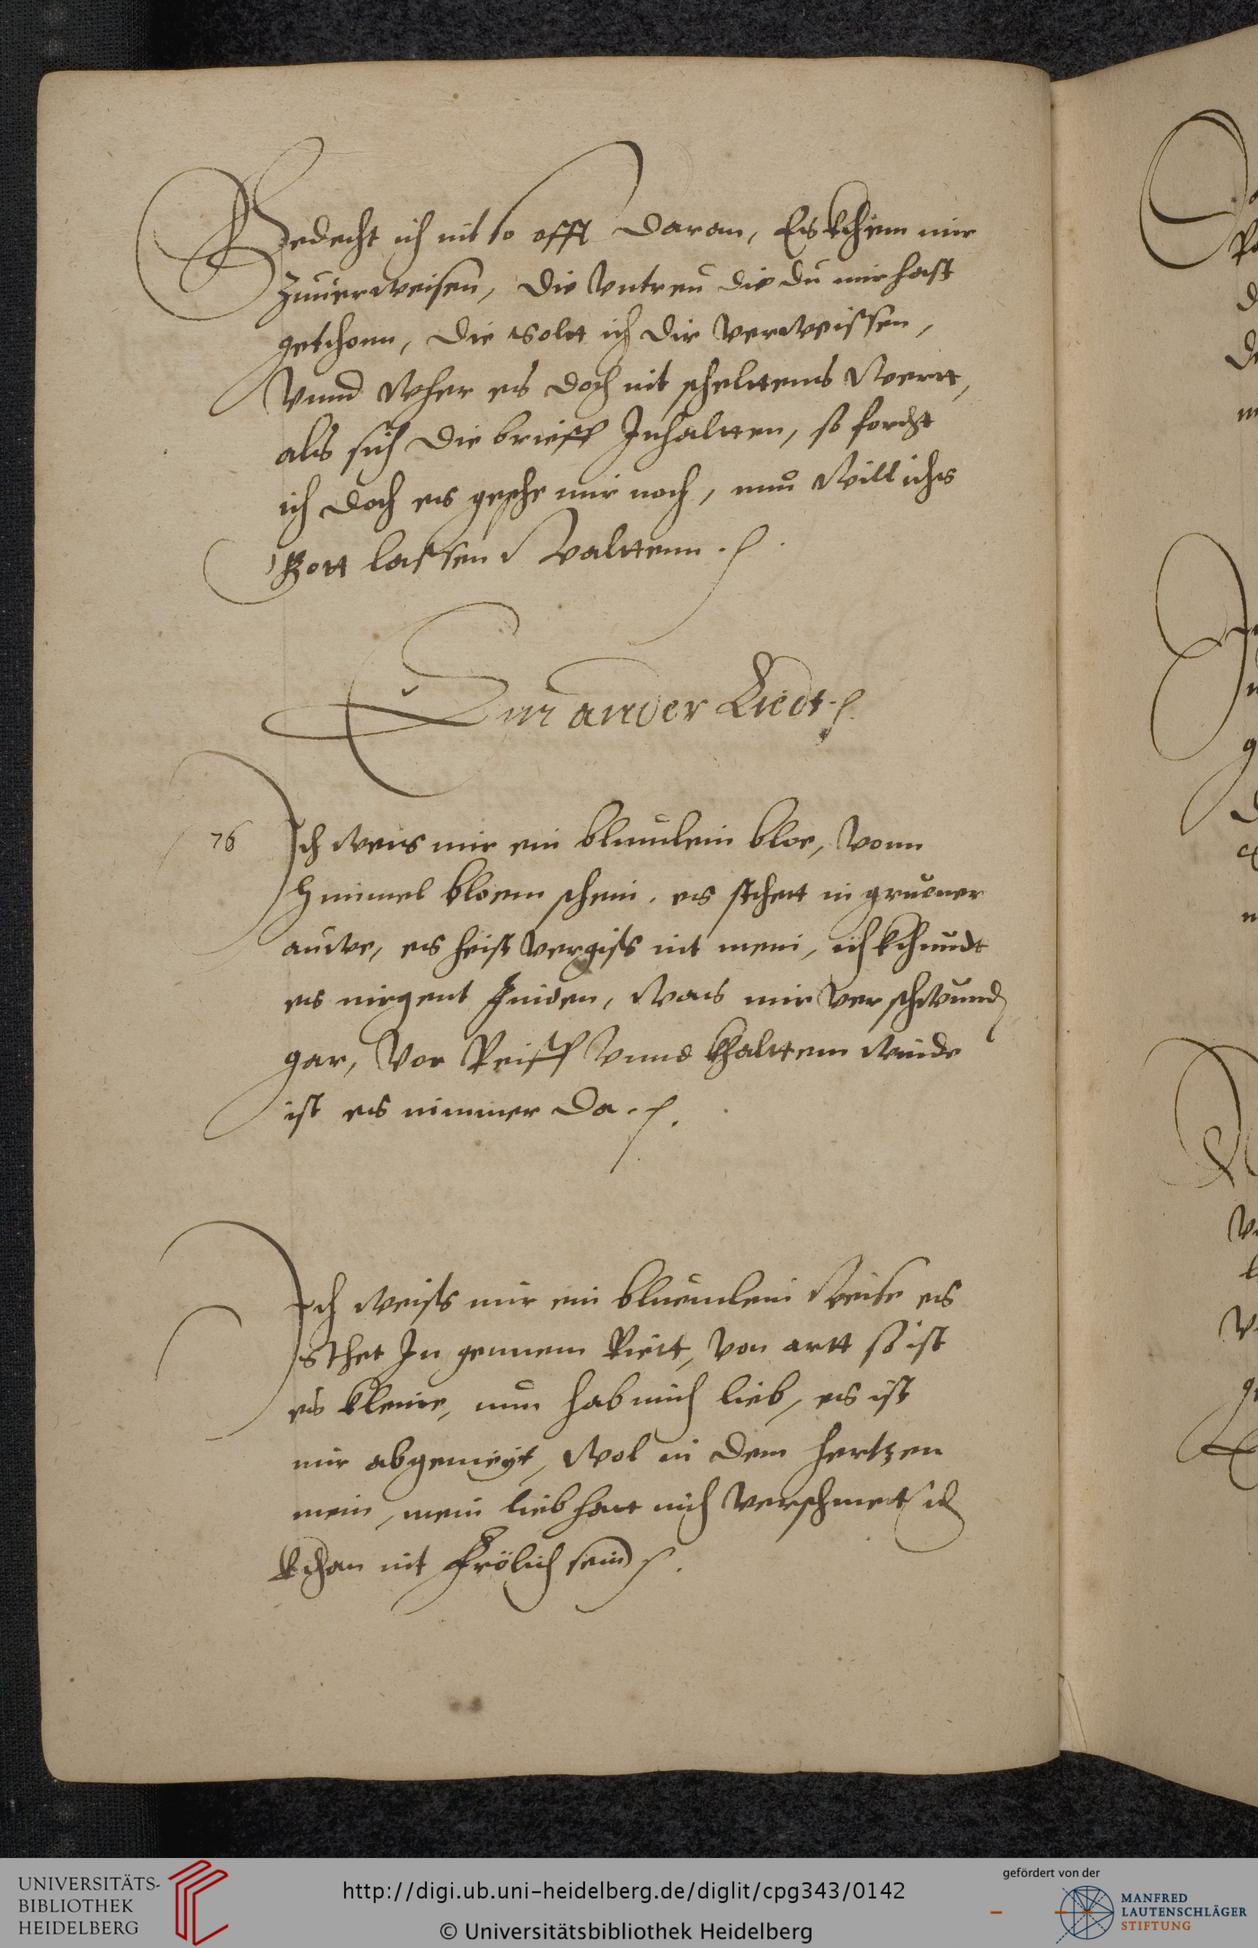 Gedecht ich nit so offt daran, Es khem mir
zuuerweisen, die Vntreu die du mir hast
gethonn, die solt ich dir verweissen,
Vnnd Wher es doch nit scheltens Wertt,
als sich die brieff Inhaltten, so forcht
ich doch es geschehe mir noch, nun Will ichs
Gott lassen Walttenn.
Ein ander Liedt
76 Ich weis mir ein bluemlein bloe, Vonn
Himmel bloem schein, es stehett in gruener
auwe, es heist vergiss nit mein, ich khundt
es nirgent finden, Was mir verschwunden
gar, Vor Reiff Vnnd khalttem Winde
ist es nimmer da.
Ich weiss mir ein bluemlein Weisse es
sthet In gennem Riett, Von artt so ist
es kleine, nun hab mich lieb, es ist
mir abgemeyt, Wol in dem hertzen
mein, mein lieb hatt mich verschmet ich
khan nit frölich sein.
UNIVERSITÄTS-
BIBLIOTHEK
HEIDELBERG
http://digi.ub.uni-heidelberg.de/diglit/cpg343/0142
© Universitätsbibliothek Heidelberg
gefördert von der
MANFRED
LAUTENSCHLÄGER
STIFTUNG